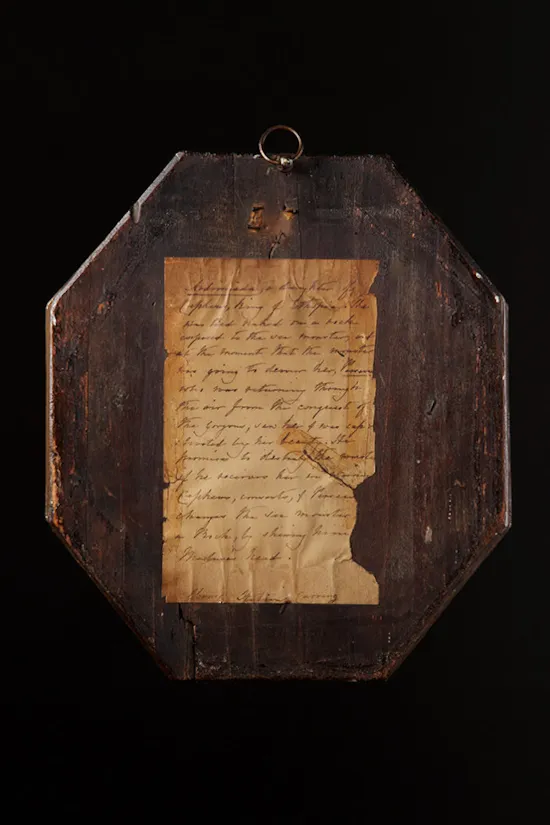 Andromeda, a daughter of
Cepheus, King of Ethiopia. She
was tied naked on a rock
exposed to the sea monster, and
at the moment that the monster
was going to devour her, Perseus
who was returning through
the air from the conquest of
the Gorgons, saw her & was cap-
tivated by her beauty. He
promises to destroy the monster
if he receives her in
Cepheus, consents, & Perseus
changes the sea monster
a Rock, by shewing him
Medusa's head.
Carving